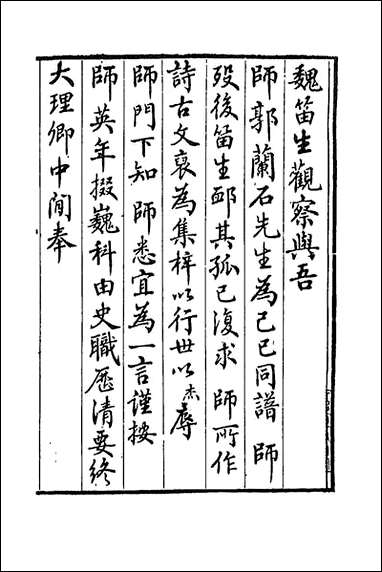 魏笛生觀察與吾
師郭蘭石先生為己巳同譜 師
歿後笛生䘏其孤已復求 師所作
詩古文裒為集梓以行世以杰辱
師門下知 師悉宜為一言謹按
師英年掇巍科由史職歷清要終
大理卿中間奉